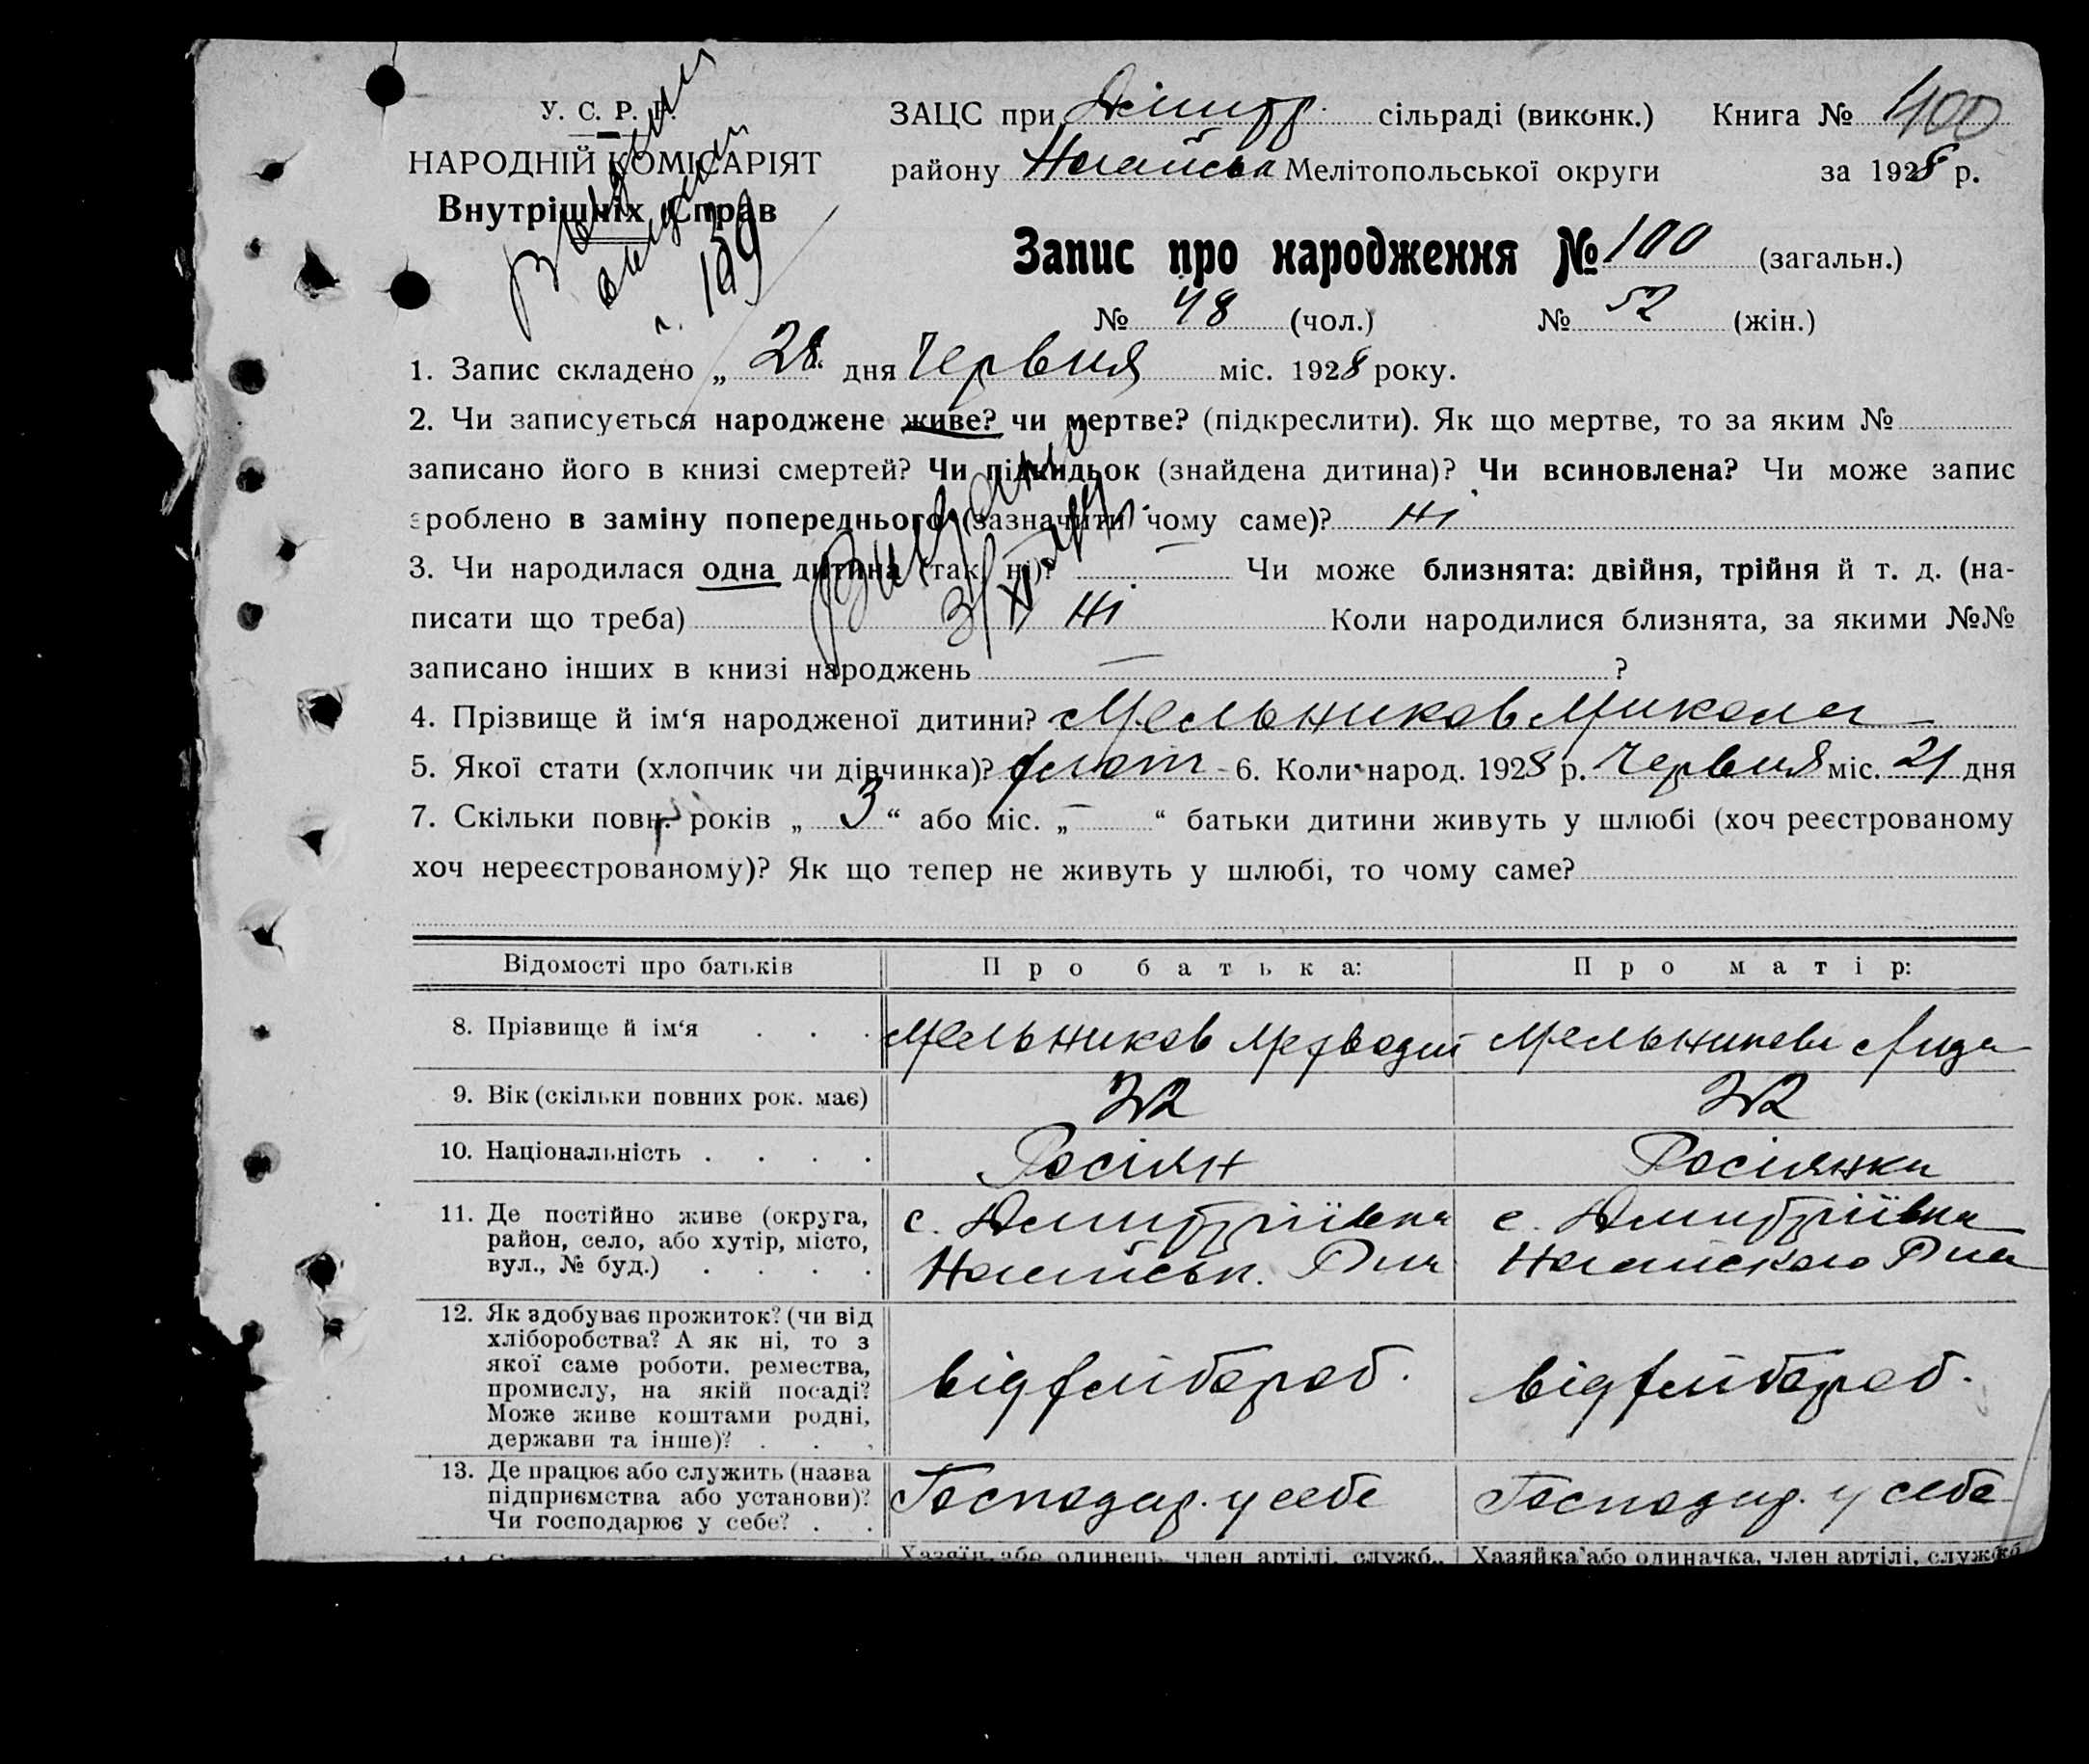 У. С. Р. Р.
НАРОДНІЙ КОМІСАРІЯТ
Внутрішніх Справ
ЗАЦС при Дмитр. сільраді (виконк.) Книга №
району Ногайськ Мелітопольської округи за 1928 р.
Запис про народження № 100 (загальн.)
№ 48 (чол.) № 52 (жін.)
1. Запис складено „ 28 “ дня Червня міс. 1928 року.
2. Чи записується народжене живе? чи мертве? (підкреслити). Як що мертве, то за яким №
записано його в книзі смертей? Чи підкидьок (знайдена дитина)? Чи всиновлена? Чи може запис
зроблено в заміну попереднього (зазначити чому саме)? Ні
3. Чи народилася одна дитина (так, ні)? — Чи може близнята: двійня, трійня й т. д. (на-
писати що треба) Ні Коли народилися близнята, за якими №№
записано інших в книзі народжень — ?
4. Прізвище й ім‘я народженої дитини? Мельников Микола
5. Якої стати (хлопчик чи дівчинка)? хлопч - 6. Коли народ. 1928 р. Червня міс. 21 дня
7. Скільки повн. років „ 3 “ або міс. „ — “ батьки дитини живуть у шлюбі (хоч реєстрованому
хоч нереєстрованому)? Як що тепер не живуть у шлюбі, то чому саме?
Відомості про батьків Про батька: Про матір:
8. Прізвище й ім‘я . . . Мельников Мельникова Лида
9. Вік (скільки повних рок. має) 22 22
10. Національність . . . . Росіян Росіянка
11. Де постійно живе (округа,
район, село, або хутір, місто,
вул., № буд.) . . . .
с. Дмитріївка
Ногайськ. Р-на
с. Дмитріївка
Ногайского Р-на
12. Як здобуває прожиток? (чи від
хліборобства? А як ні, то з
якої саме роботи, ремества,
промислу, на якій посаді?
Може живе коштами родні,
держави та інше)? . . .
від хлібороб.
від хлібороб.
13. Де працює або служить (назва
підприємства або установи)?
Чи господарює у себе? . .
Господар. у себе
Господар. у себе
Хазяїн, або одинець, член артілі, служб., Хазяйка або одиначка, член артілі, служб